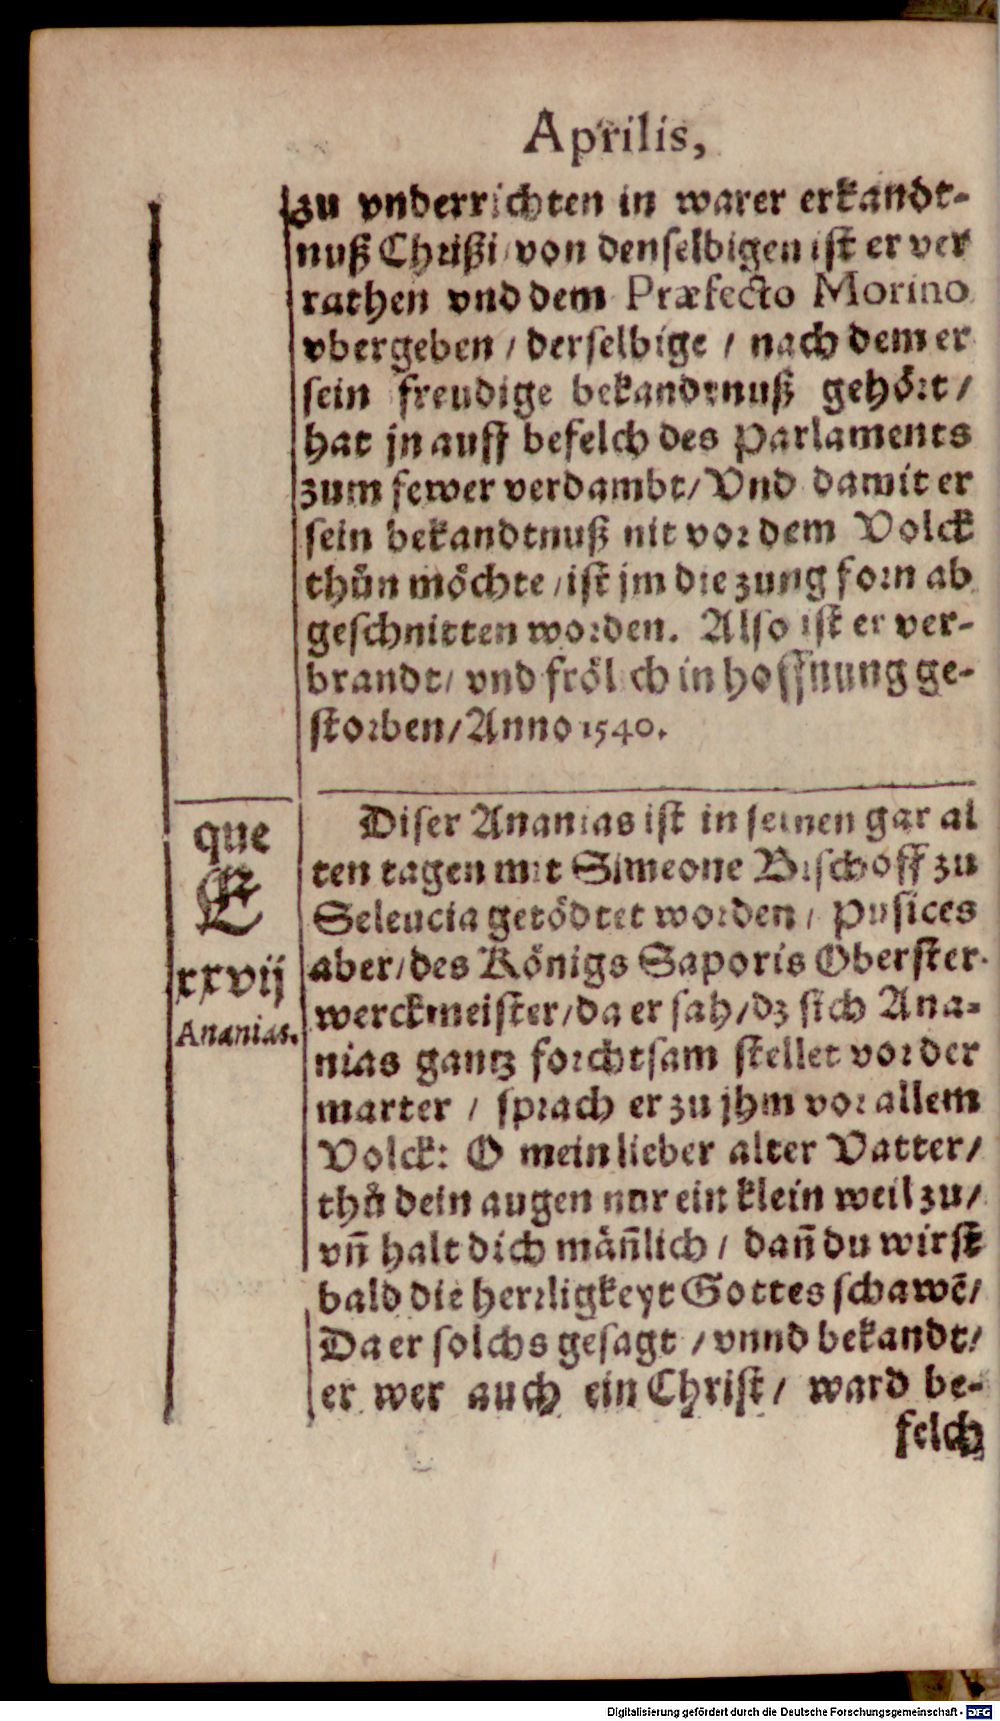 Aprilis,
zu vnderrichten in warer erkandt-
nuß Christi/von denselbigen ist er ver
rathen vnd dem Præfecto Morino
vbergeben / derselbige / nach dem er
sein freudige bekandtnuß gehört/
hat jn auff befelch des Parlaments
zum fewer verdambt/Vnd damit er
sein bekandtnuß nit vor dem Volck
thůn möchte/ist jm die zung forn ab
geschnitten worden. Also ist er ver-
brandt/ vnd frölich in hoffnung ge-
storben/Anno 1540.
que
E
xxvij
Ananias.
Diser Ananias ist in seinen gar al
ten tagen mit Simeone Bischoff zu
Seleucia getödtet worden/ Pusices
aber/des Königs Saporis Oberster
werckmeister/da er sah/dz sich Ana-
nias gantz forchtsam stellet vor der
marter / sprach er zu jhm vor allem
Volck: O mein lieber alter Vatter/
thů dein augen nur ein klein weil zu/
vñ halt dich mäñlich / dañ du wirst
bald die herrligkeyt Gottes schawē/
Da er solchs gesagt / vnnd bekandt/
er wer auch ein Christ/ ward be-
felch
Digitalisierung gefördert durch die Deutsche Forschungsgemeinschaft - DFG